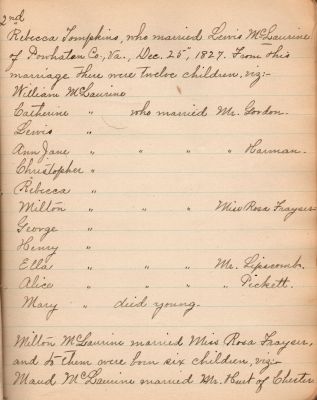 2nd
Rebecca Tompkins, who married Lewis McLaurine
of Powhatan Co., Va., Dec. 25", 1827. From this
marriage there were twelve children, viz:-
William McLaurine
Catherine " who married Mr. Gordon.
Lewis "
Ann Jane " " " " Harman.
Christopher "
Rebecca "
Milton " " " Miss Rosa Frayser
George "
Henry "
Ella " " " Mr. Lipscomb.
Alice " " " " Pickett.
Mary " died young.
Milton McLaurine married Miss Rosa Frayser,
and to them were born six children, viz:-
Maud McLaurine married Mr. Hurt of Chester